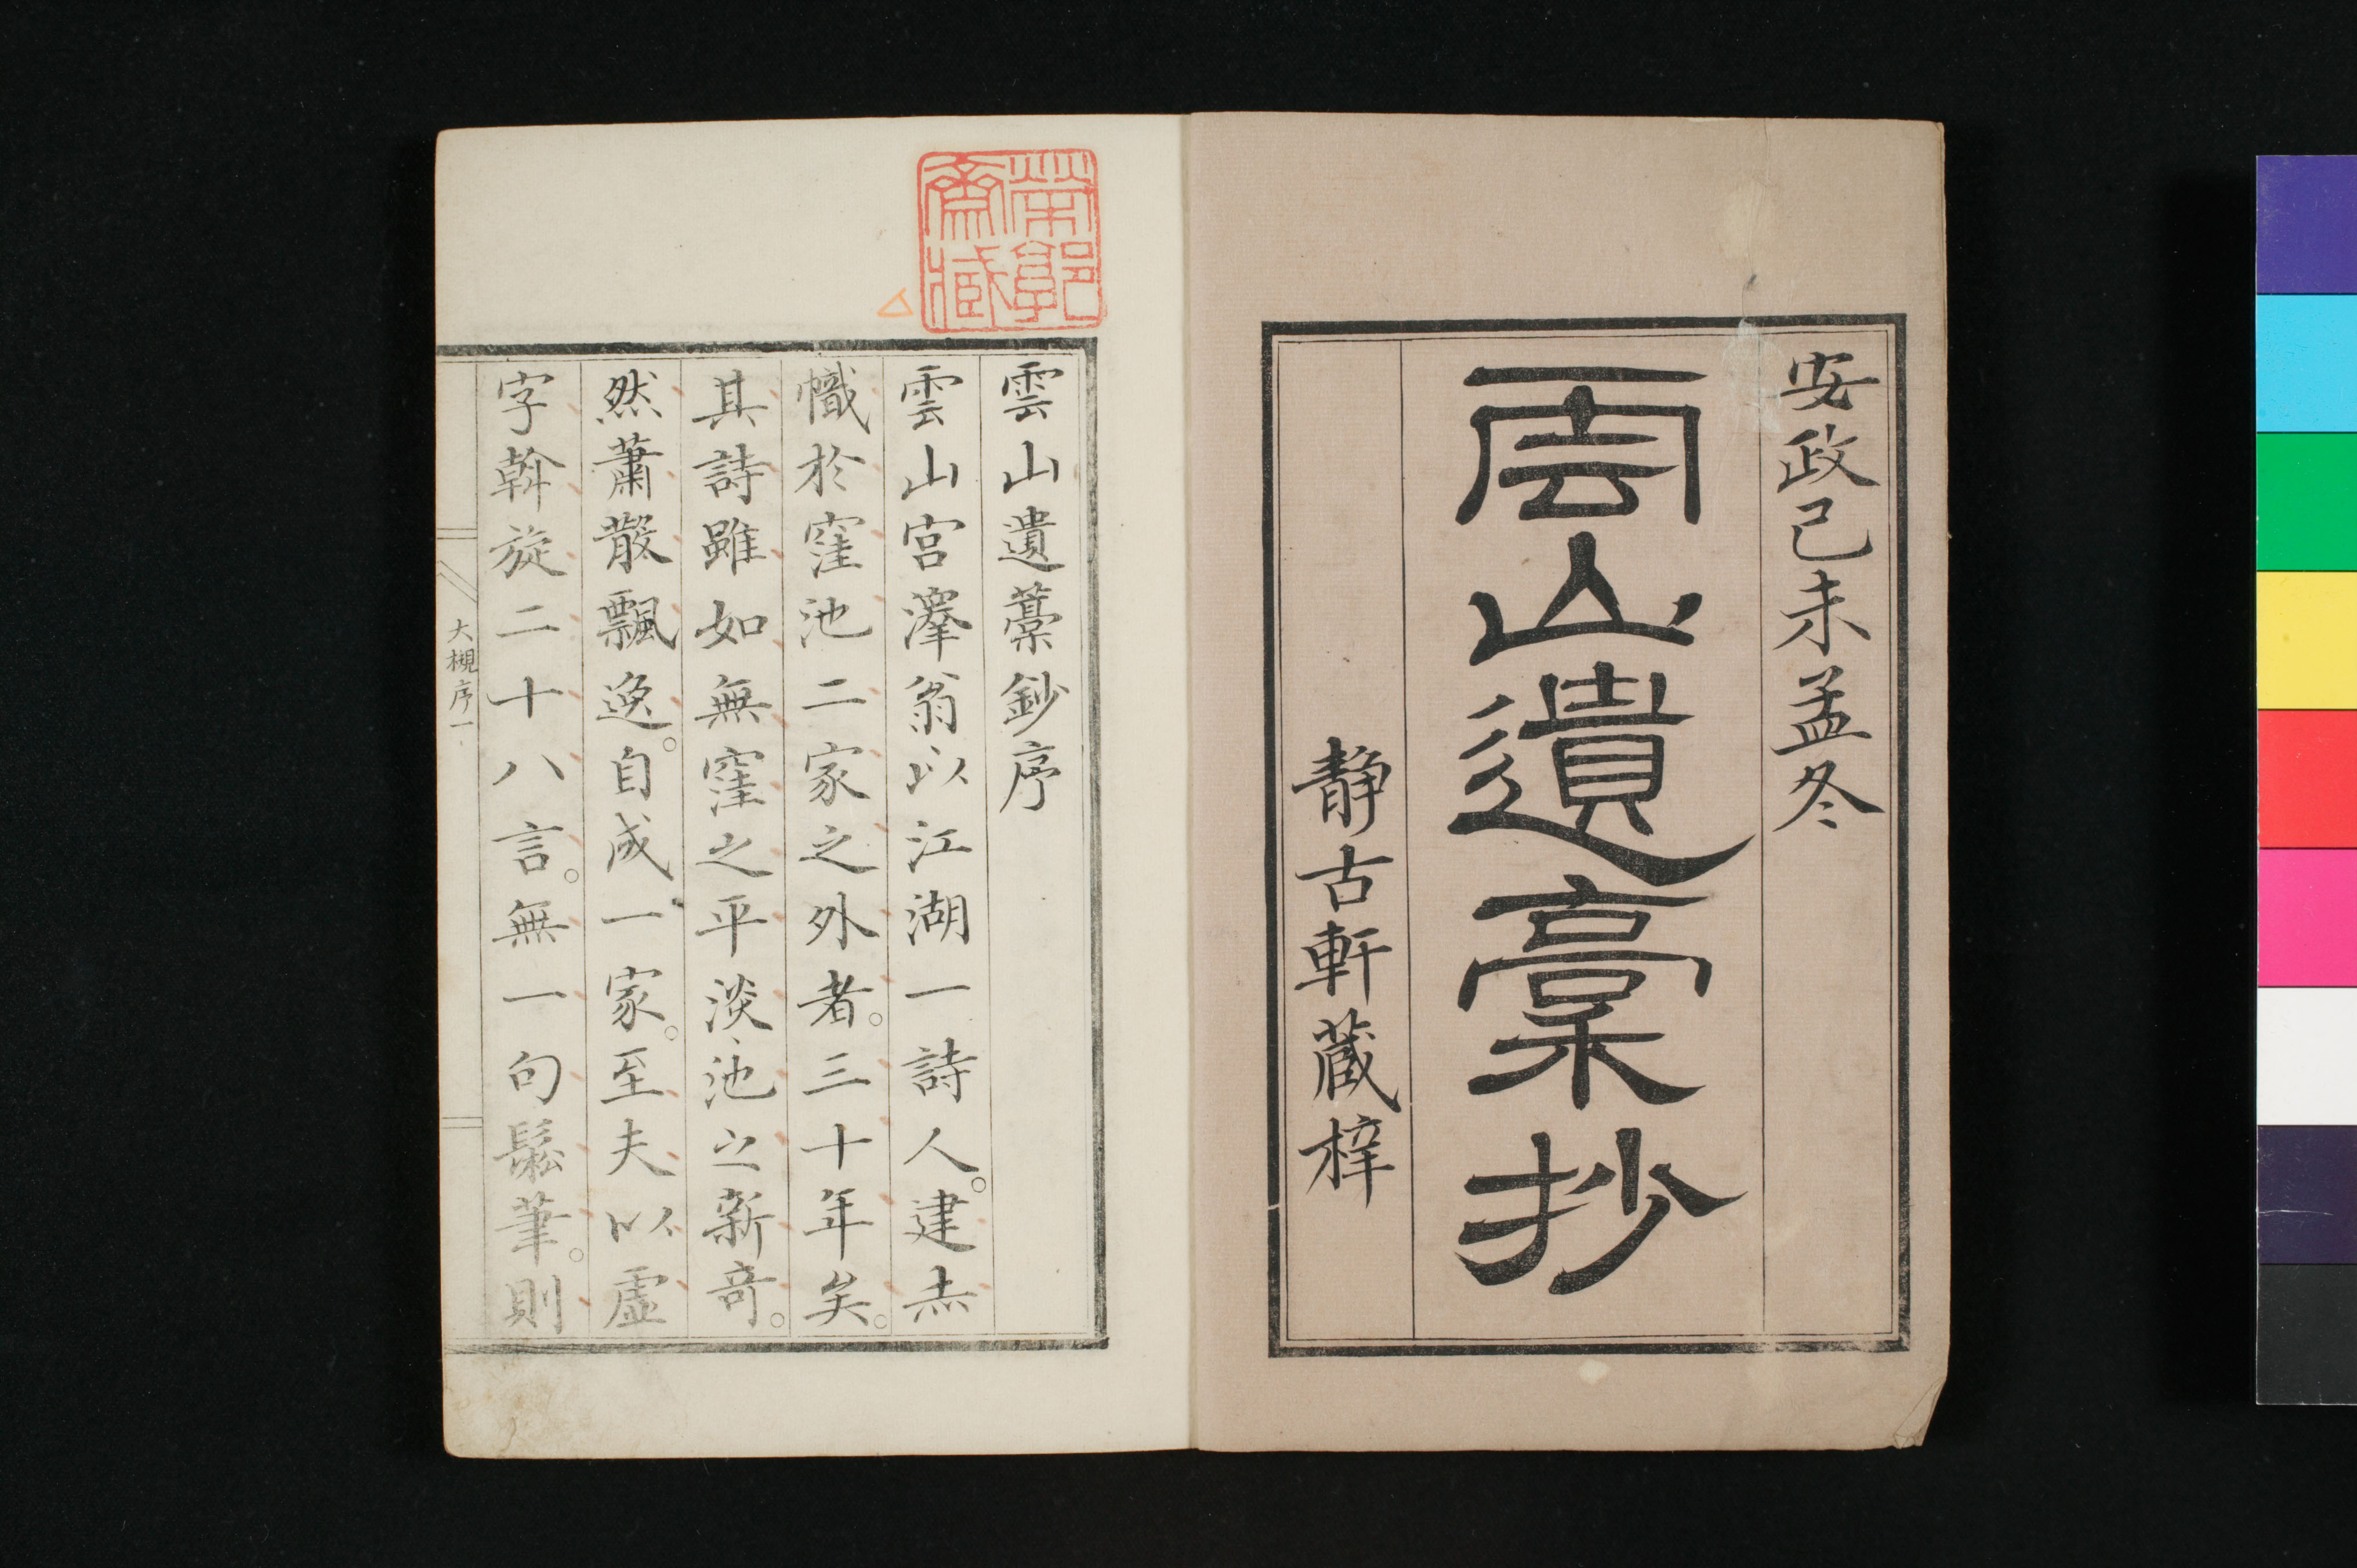 安政己未孟冬
雲山遺稾抄
静古軒蔵梓
帶郭
齋臧
雲山遺藁鈔序
雲山宮澤翁以江湖一詩人。建赤
幟於窪池二家之外者。三十年矣。
其詩雖如無窪之平淡、池之新奇。
然蕭散飄逸。自成一家。至夫以虛
字斡旋二十八言。無一句鬆筆。則
大槻序一